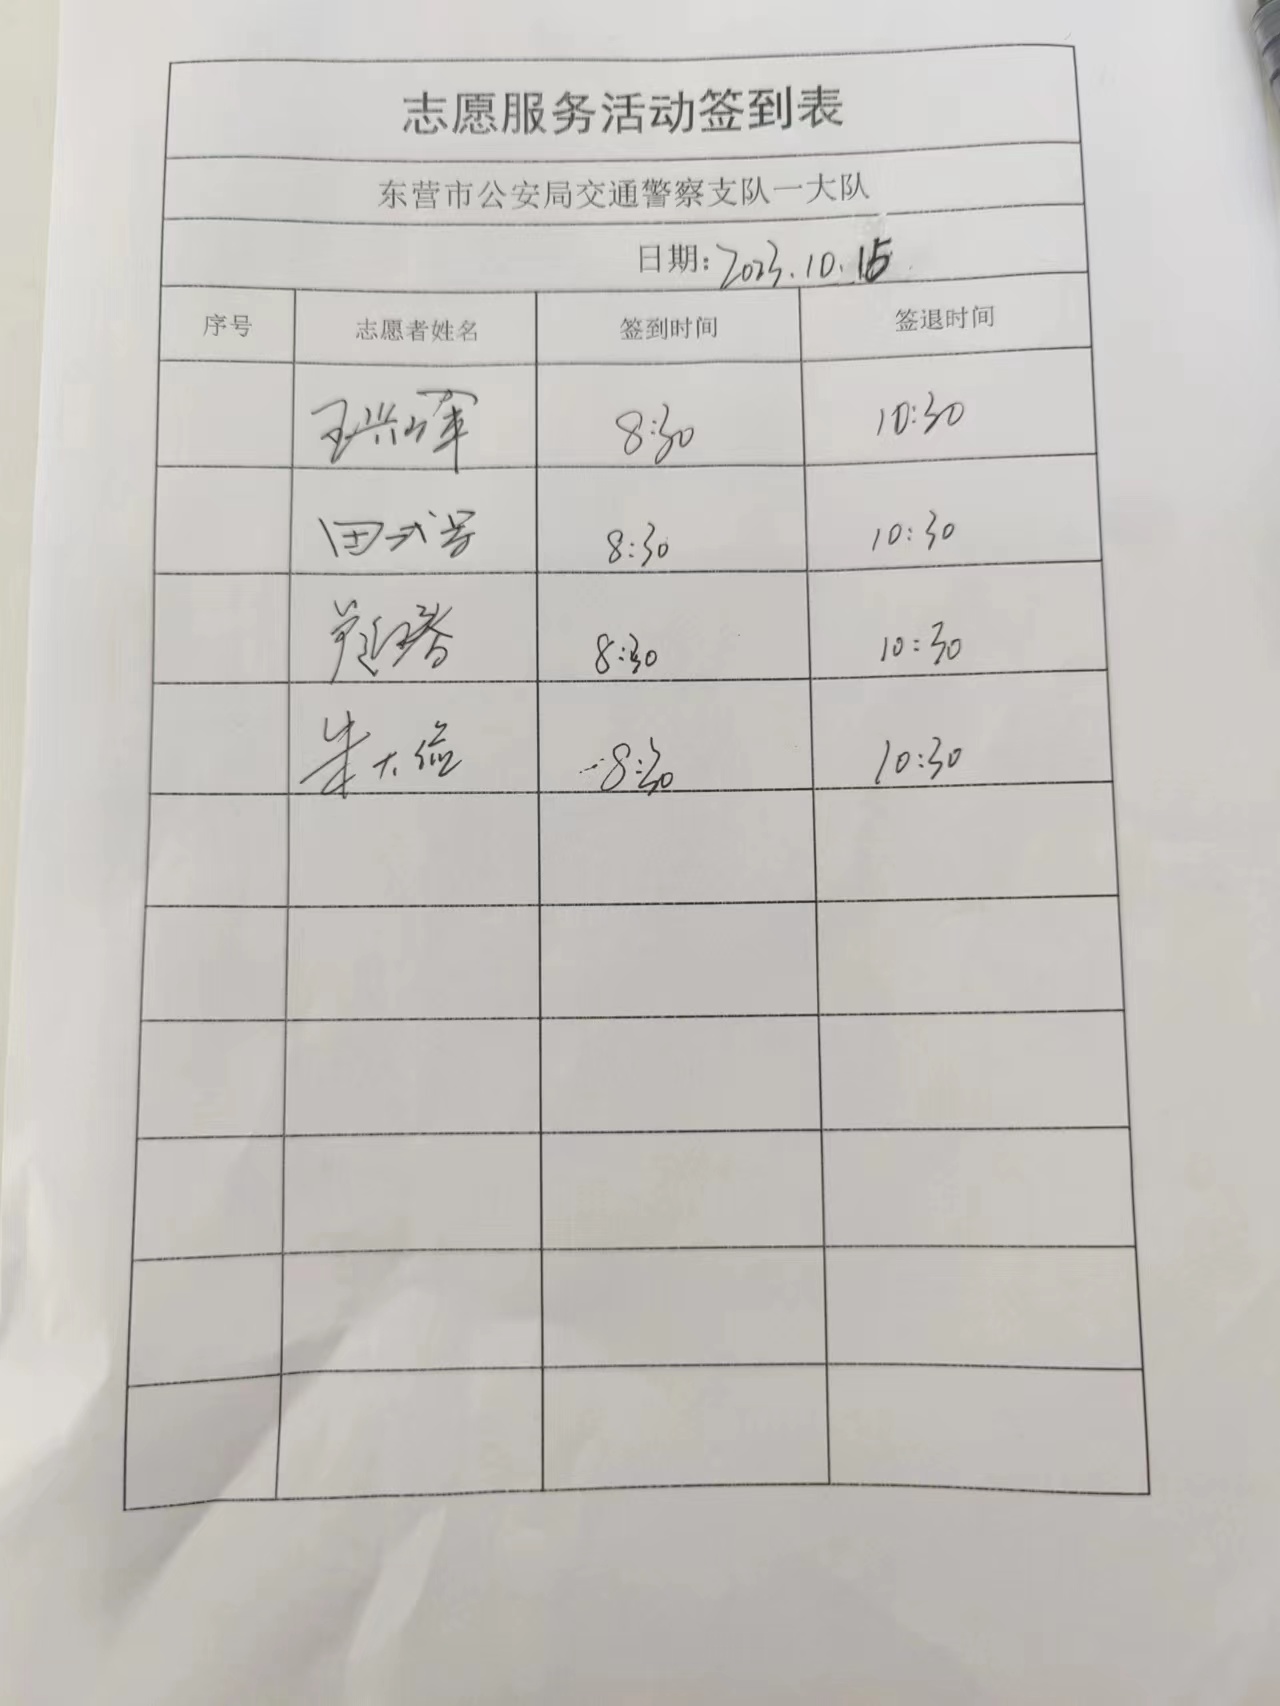 志愿服务活动签到表
东营市公安局交通警察支队一大队
日期:2023.10.15
序号 志愿者姓名 签到时间 签退时间
王兴军 8:30 10:30
田 8:30 10:30
8:30 10:30
朱大俭 8:30 10:30